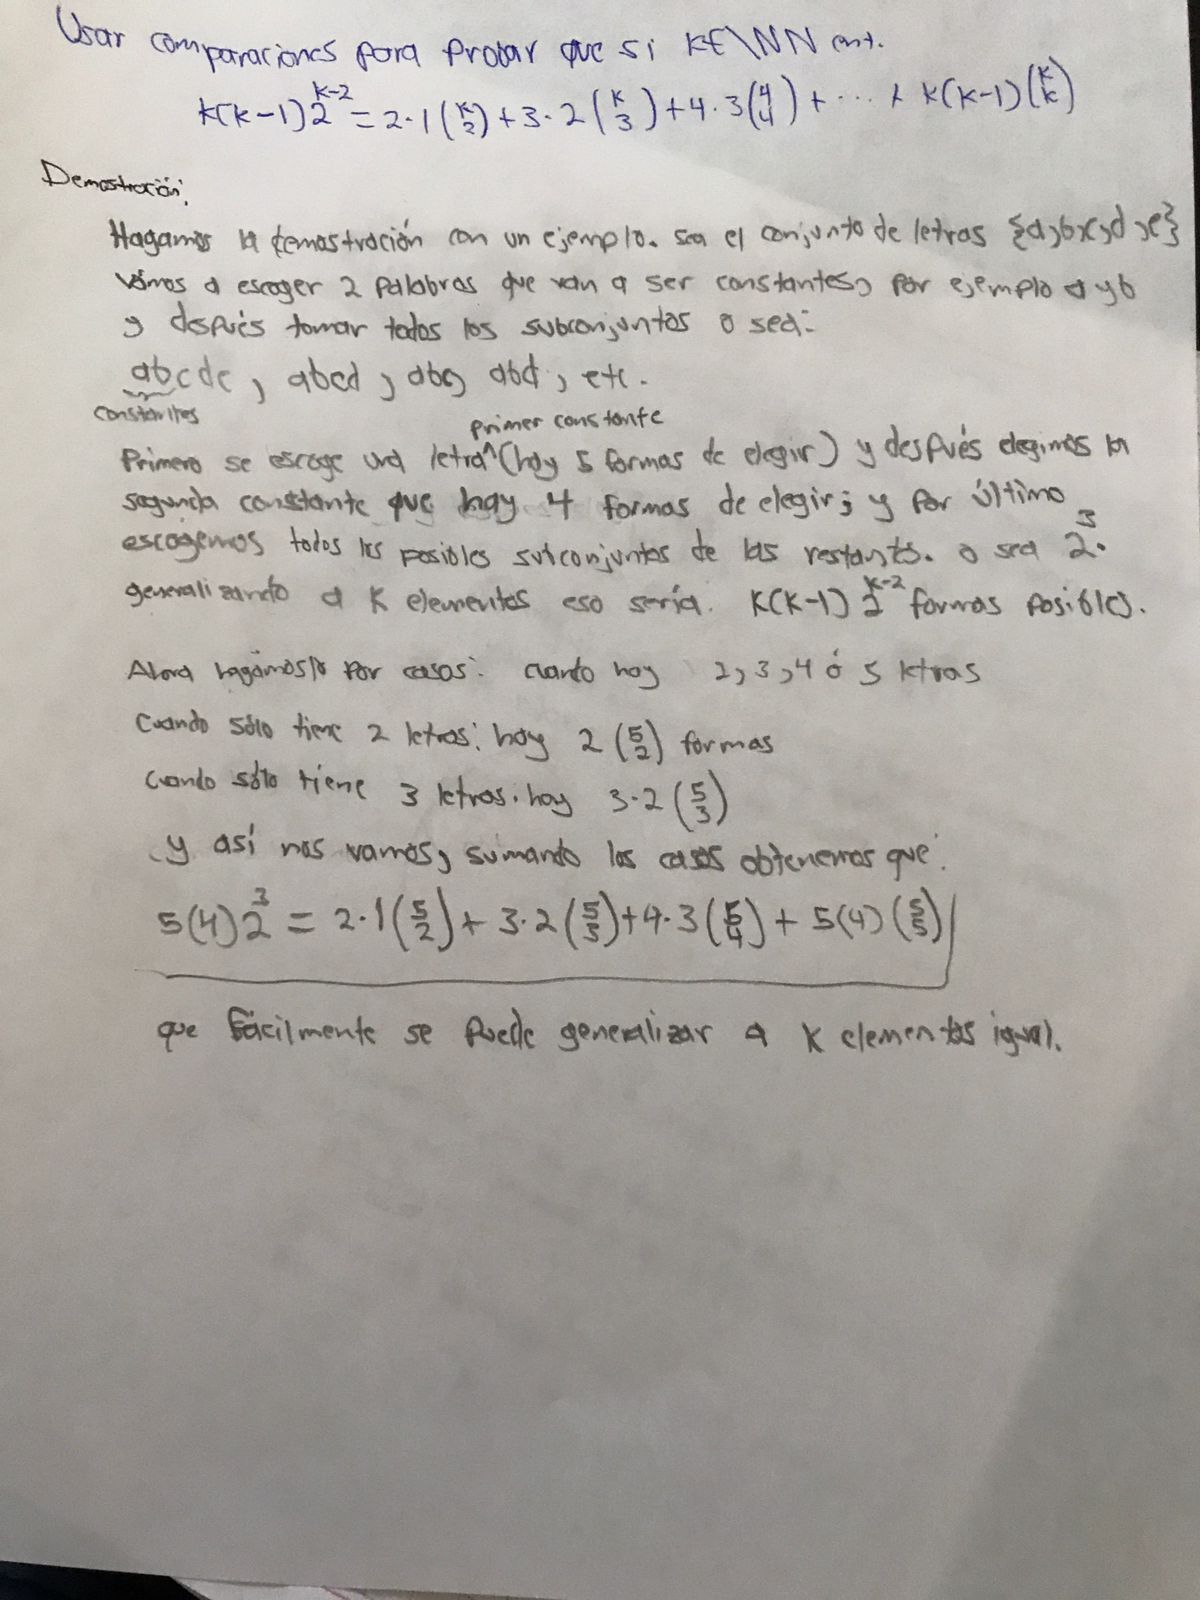 Usar comparaciones para Probar que si K∈\NN ent.
K(K-1)2^{K-2} = 2·1(K 2) + 3·2(K 3) + 4·3(4 4) + ... + K(K-1)(K K)
Demostración:
Hagamos la demostración con un ejemplo. sea el conjunto de letras {a,b,c,d,e}
vamos a escoger 2 palabras que van a ser constantes, por ejemplo a y b
y después tomar todos los subconjuntos o sea:
abcde, abcd, abc, abd, etc.
constantes
primer constante
Primero se escoge una letra^(hay 5 formas de elegir) y después elegimos la
segunda constante que hay 4 formas de elegir; y por último
escogemos todos los posibles subconjuntos de las restants. o sea 2^3.
generalizando a K elementos eso sería. K(K-1) 2^{K-2} formas posibles.
Ahora hagámoslo por casos: cuando hay 2, 3, 4 ó 5 letras
Cuando sólo tiene 2 letras: hay 2 (5 2) formas
cuando sólo tiene 3 letras. hay 3·2 (5 3)
y así nos vamos, sumando los casos obtenemos que:
5(4)2^3 = 2·1(5 2) + 3·2(5 3) + 4·3(5 4) + 5(4)(5 5)
que fácilmente se puede generalizar a K elementos igual.